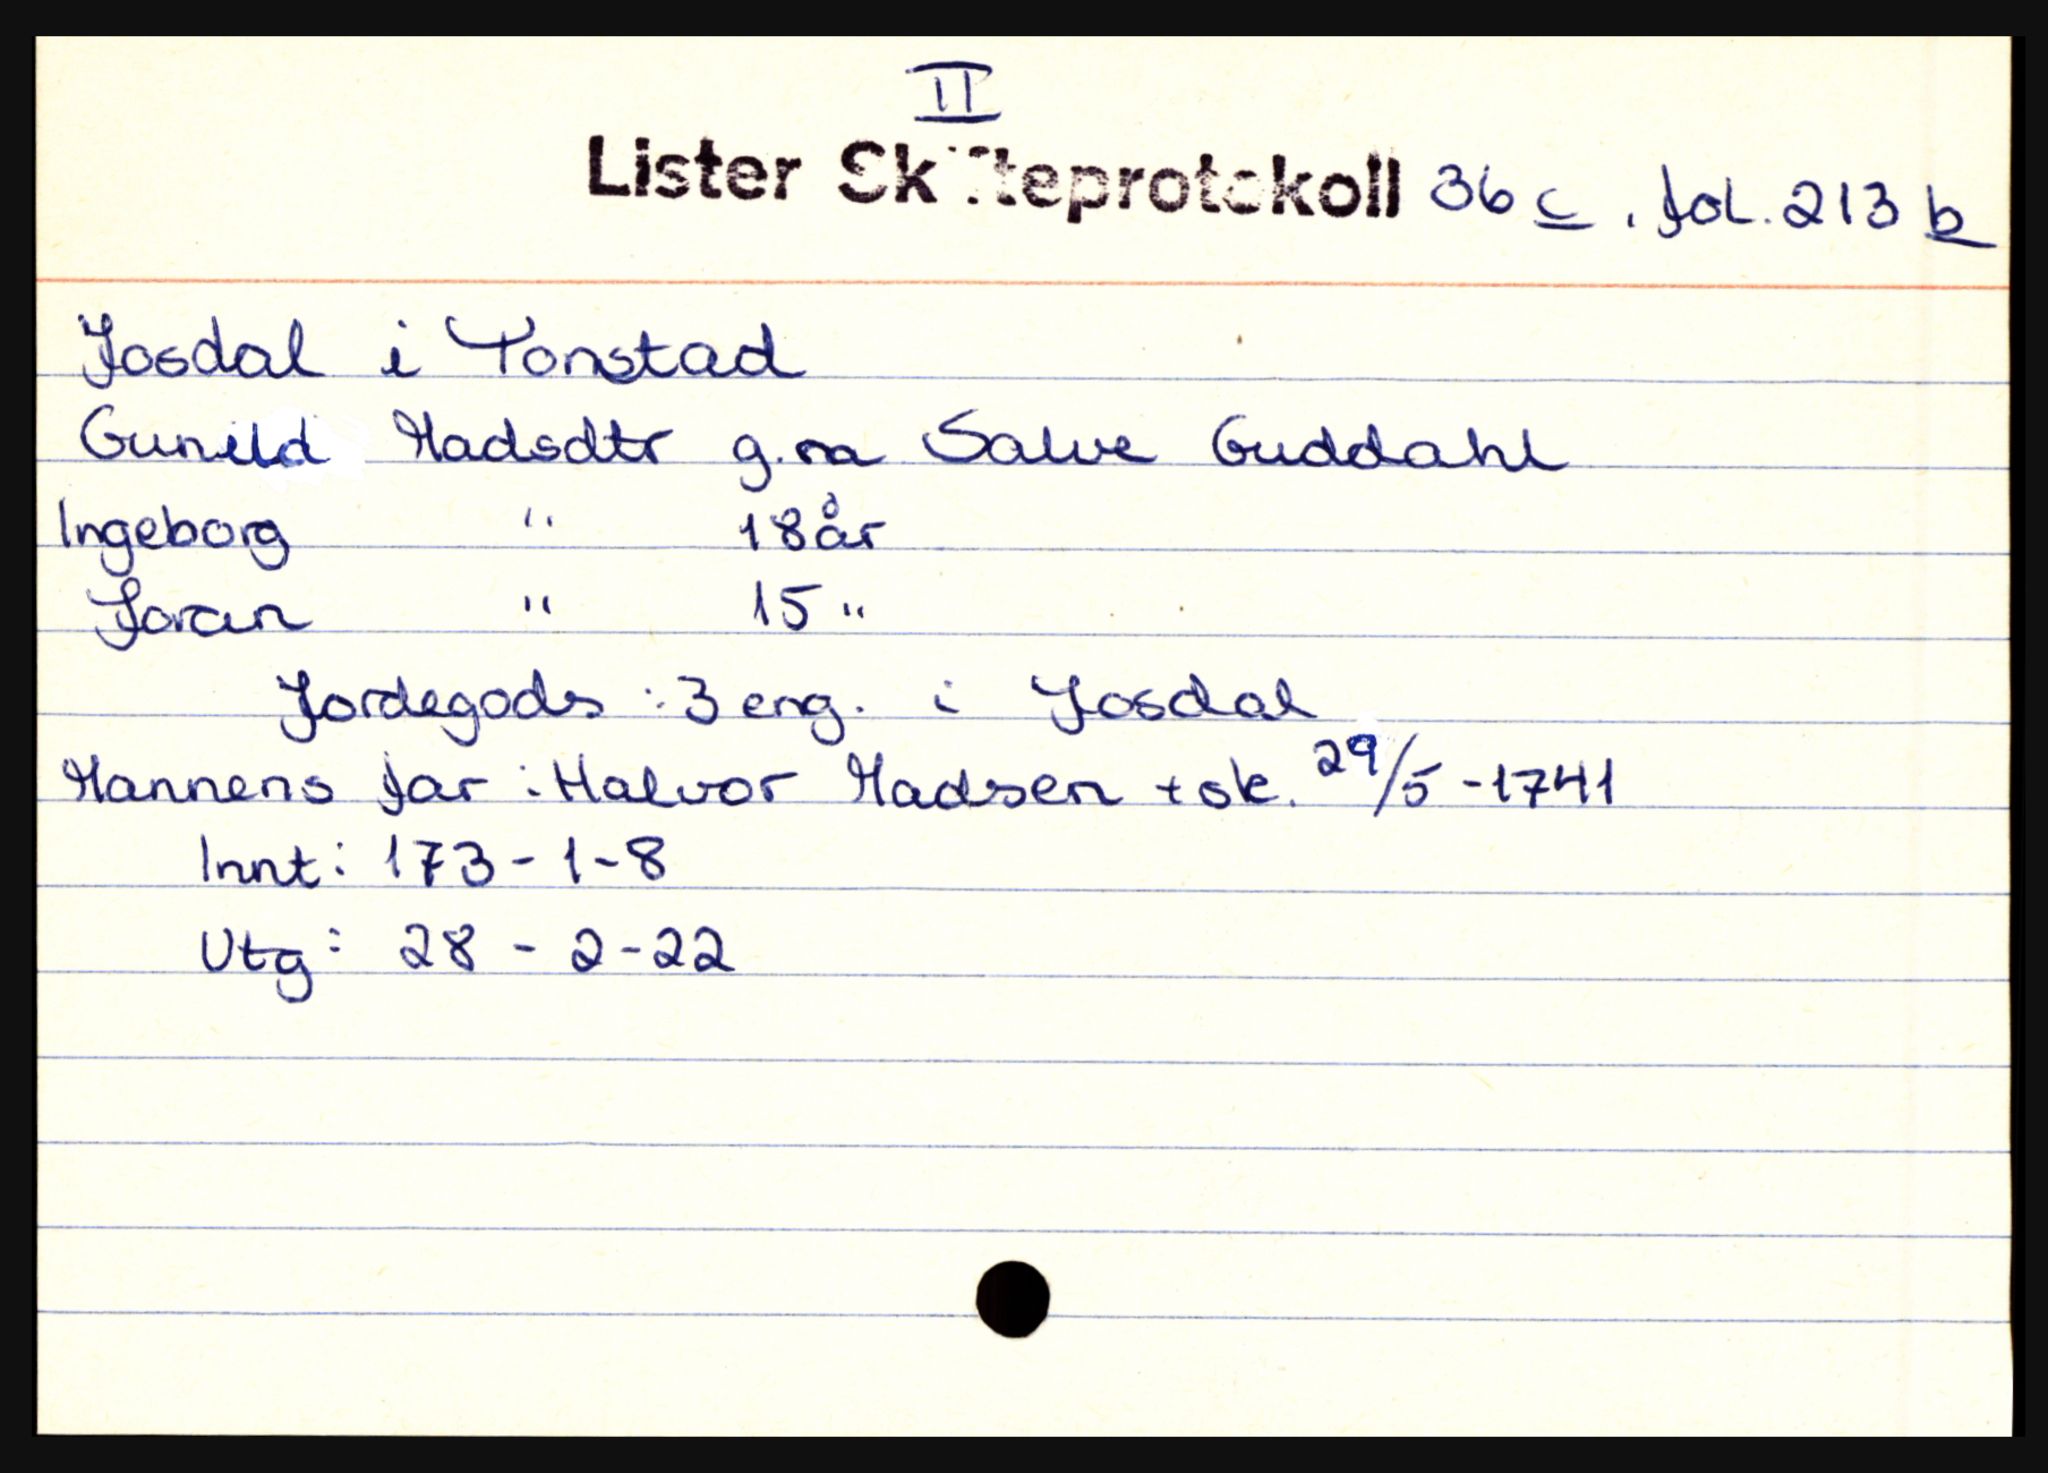 II
Lister Skifteprotokoll 36 c, fol. 213 b
Josdal i Tonstad
Gunild Madsdtr g.m Salve Guddahl
Ingeborg " 18 år
Joran " 15 "
Jordegods : 3 eng. i Josdal
Mannens far : Halvor Madsen + sk. 29/5 - 1741
Innt : 173 - 1 - 8
Utg : 28 - 2 - 22